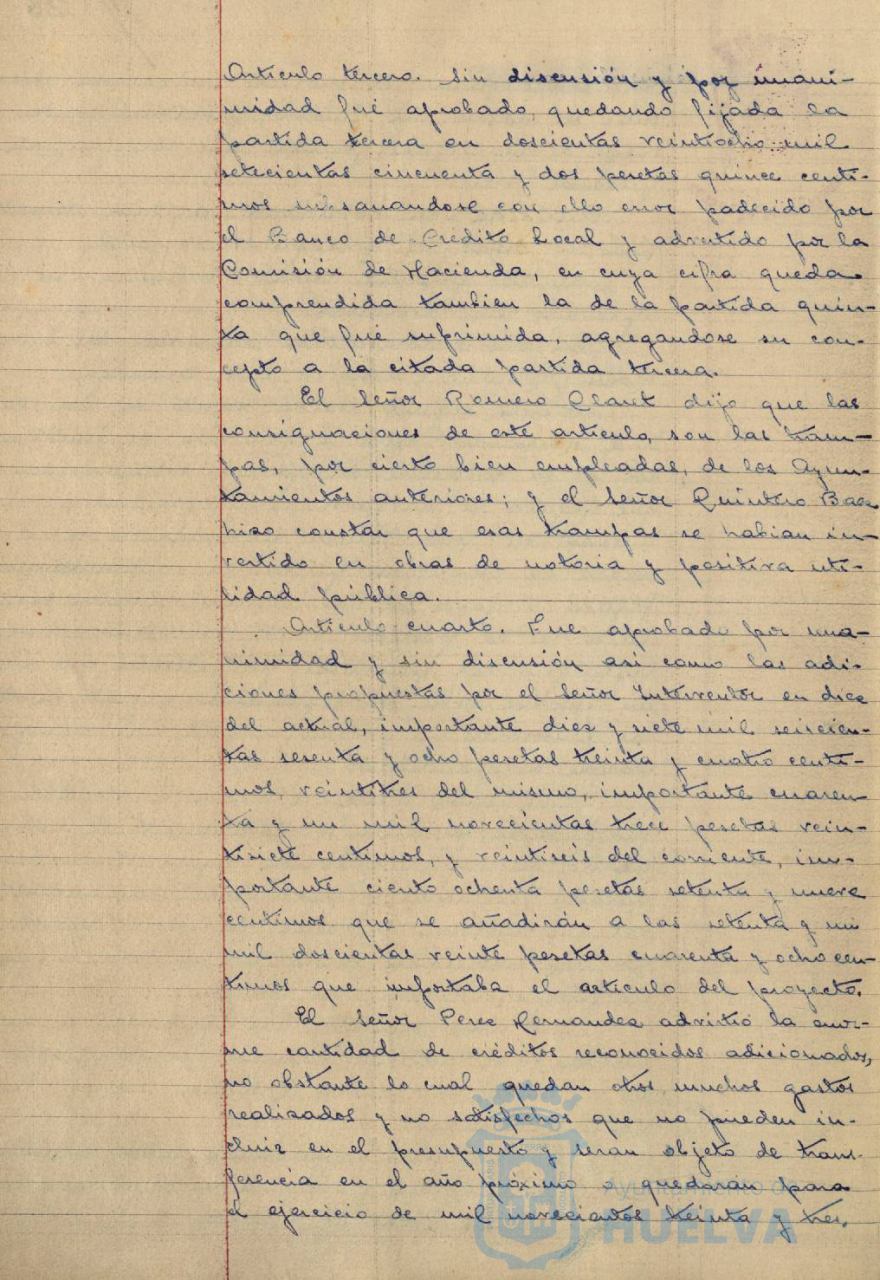 Articulo tercero. Sin discusión y por unani-
midad fué aprobado, quedando fijada la
partida tercera en doscientas veintiocho mil
setecientas cincuenta y dos pesetas quince centi-
mos subsanandose con ello error padecido por
el Banco de Crédito Local y advertido por la
Comisión de Hacienda, en cuya cifra queda
comprendida tambien la de la partida quin-
ta que fué suprimida, agregandose su con-
cepto a la citada partida tercera.
El Señor Romero Claret dijo que las
consignaciones de este articulo, son las tram-
pas, por cierto bien empleadas, de los Ayun-
tamientos anteriores; y el Señor Quintero Baez
hizo constar que esas trampas se habian in-
vertido en obras de notoria y positiva uti-
lidad pública.
Articulo cuarto. Fue aprobado por una-
nimidad y sin discusión asi como las adi-
ciones propuestas por el Señor Interventor en diez
del actual, importante diez y siete mil seiscien-
tas sesenta y ocho pesetas treinta y cuatro centi-
mos, veintitres del mismo, importante cuaren
ta y un mil novecientas trece pesetas vein-
tisiete centimos, y veintiseis del corriente, im-
portante ciento ochenta pesetas setenta y nueve
centimos que se añadirán a las setenta y un
mil doscientas veinte pesetas cuarenta y ocho cen-
timos que importaba el articulo del proyecto.
El Señor Perez Hernandez advirtió la enor-
me cantidad de créditos reconocidos adicionados,
no obstante lo cual quedan otros muchos gastos
realizados y no satisfechos que no pueden in-
cluir en el presupuesto y seran objeto de trans-
ferencia en el año próximo o quedarán para
el ejercicio de mil novecientos treinta y tres.
Ayuntamiento de
HUELVA